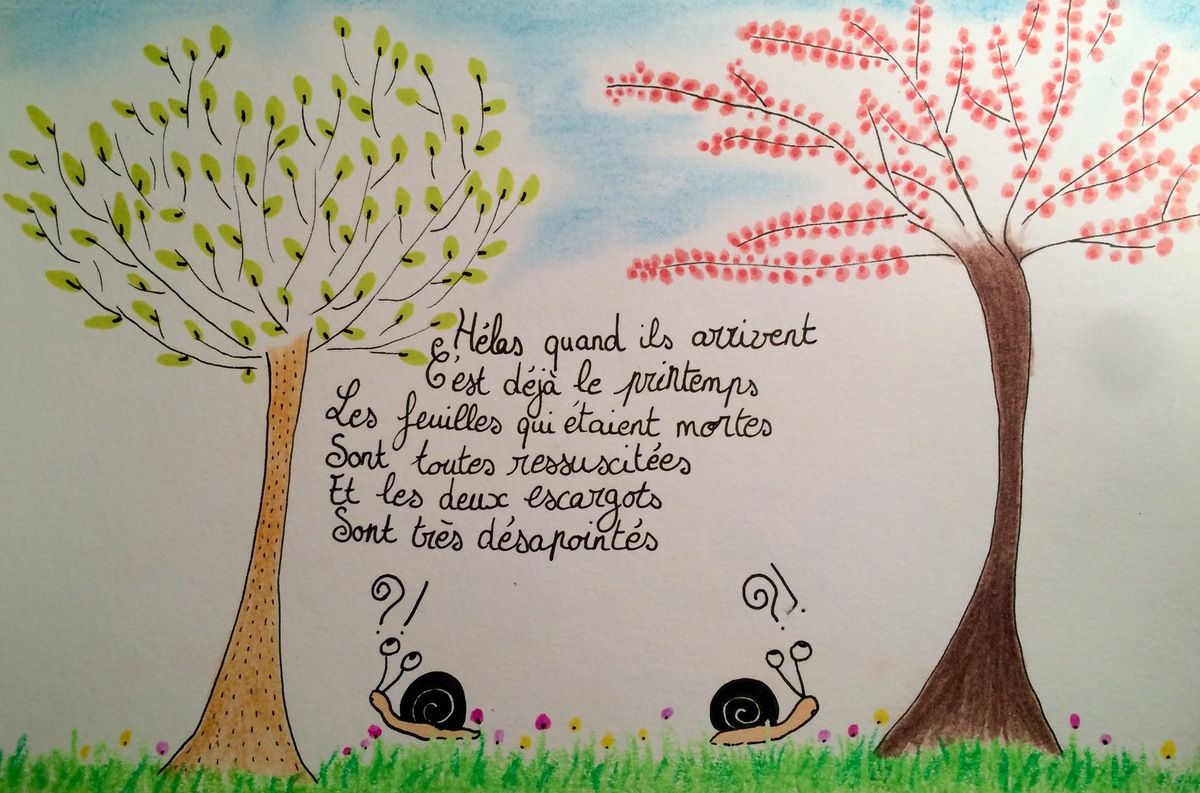 Hélas quand ils arrivent
C'est déjà le printemps
Les feuilles qui étaient mortes
Sont toutes ressuscitées
Et les deux escargots
Sont très désapointés
?! ?!